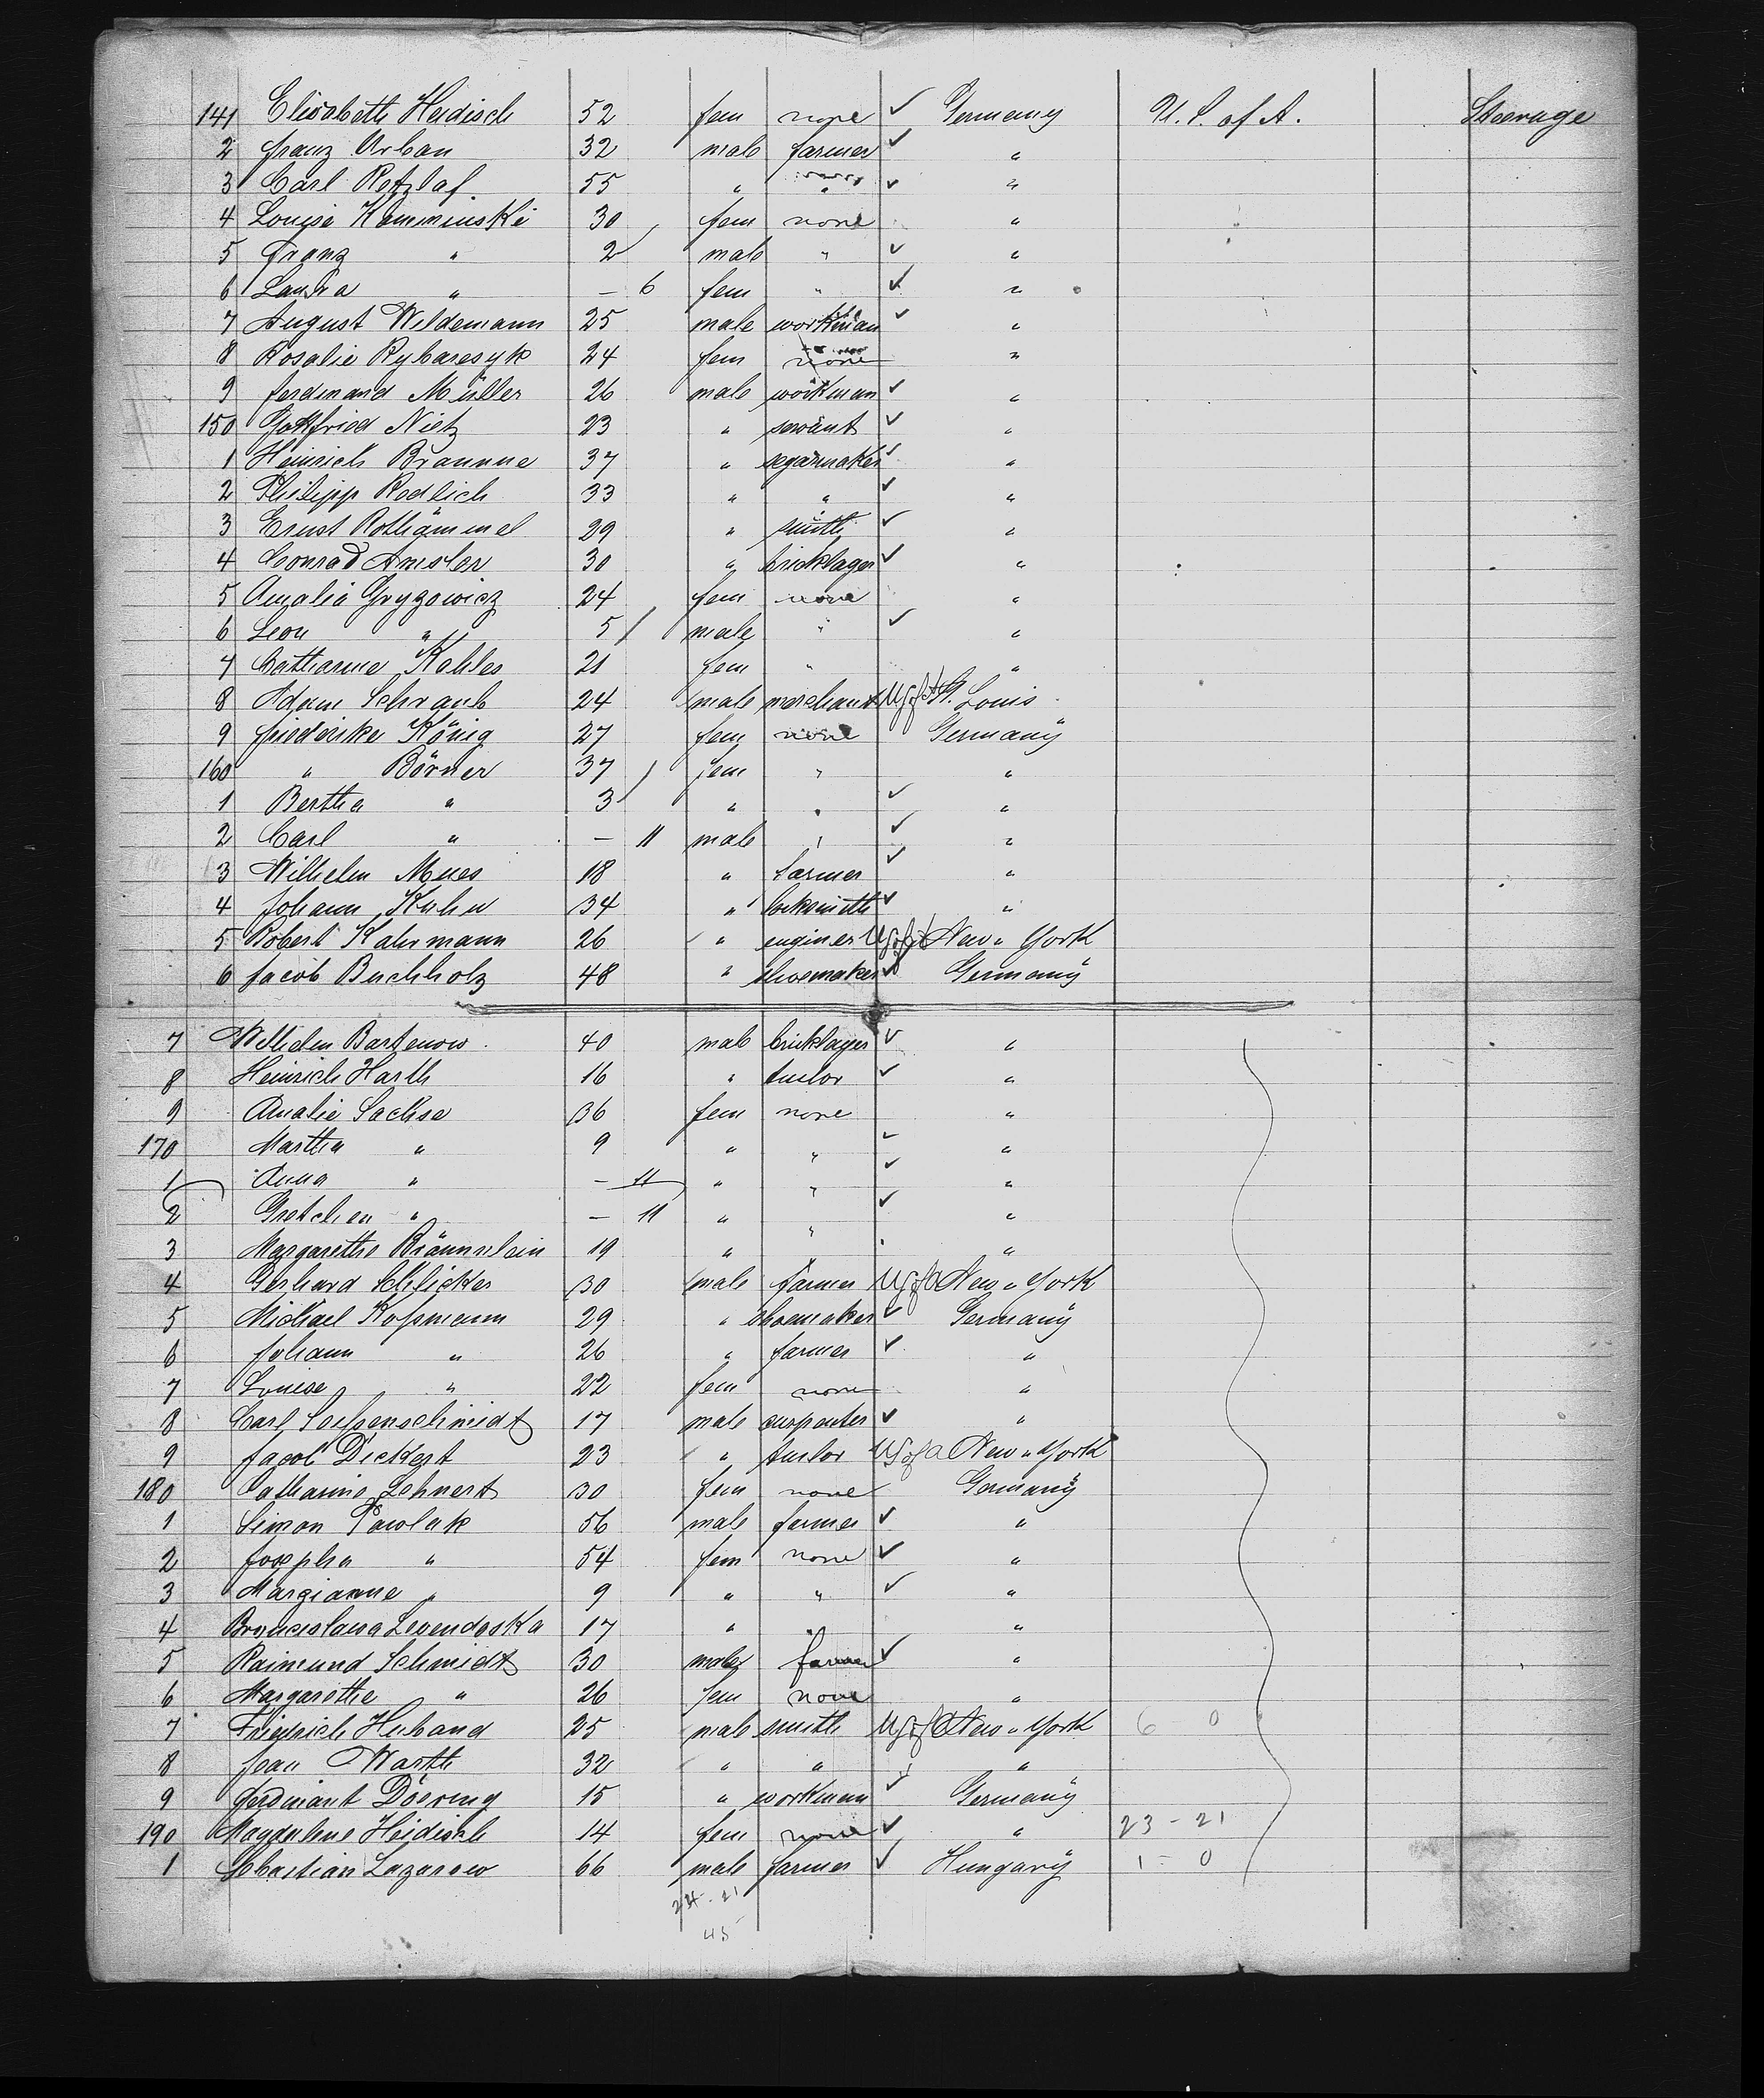 141 Elisabeth Heidisch 52 fem none ✓ Germany U. S. of A. Steerage
2 Franz Urban 32 male farmer ✓ "
3 Carl Retzlaf 55 " " ✓ "
4 Louise Kamminski 30 fem none "
5 Franz " 2 male " ✓ "
6 Laura " — 6 fem " ✓ "
7 August Wildemann 25 male workman ✓ "
8 Rosalie Rybaresyk 24 fem none "
9 Ferdinand Müller 26 male workman ✓ "
150 Gottfried Nietz 23 " servant ✓ "
1 Heinrich Braunne 37 " segarmaker ✓ "
2 Philipp Redlich 33 " " ✓ "
3 Ernst Rothämmel 29 " smith ✓ "
4 Conrad Amsler 30 " bricklager ✓ "
5 Amalie Gryzowicz 24 fem none "
6 Leon " 5 male " ✓ "
7 Catharine Kohles 21 fem " "
8 Adam Schraub 24 male merchant U S of A St. Louis
9 Friederike König 27 fem none Germany
160 " Börner 37 fem " "
1 Bertha " 3 " " ✓ "
2 Carl " — 11 male " ✓ "
3 Wilhelm Mues 18 " farmer ✓ "
4 Johann Kuhn 34 " locksmith ✓ "
5 Robert Kahrmann 26 " enginer U S of A New York
6 Jacob Buchholz 48 " shoemaker ✓ Germany
7 Wilhelm Bartenow 40 male bricklayer ✓ "
8 Heinrich Harth 16 " tailor ✓ "
9 Amalie Sachse 36 fem none "
170 Martha " 9 " " ✓ "
1 Anna " — 11 " " ✓ "
2 Gretchen " — 11 " " ✓ "
3 Margarethe Bräunnlein 19 " " "
4 Gerhard Schlicker 30 male farmer U S of A New York
5 Michael Kossmann 29 " shoemaker ✓ Germany
6 Johann " 26 " farmer ✓ "
7 Louise " 22 fem none "
8 Carl 17 male carpenter ✓ "
9 Jacob Dickert 23 " tailor U S of A New York
180 Catharine Lehnert 30 fem none Germany
1 Simon Pawlak 56 male farmer ✓ "
2 Josepha " 54 fem none ✓ "
3 Margianne " 9 " " ✓ "
4 17 " " "
5 Raimund Schmidt 30 male farmer ✓ "
6 Margarethe " 26 fem none "
7 Friedrich Huband 25 male smith U S of A New York 6 0
8 Jean Warth 32 " " "
9 Ferdinant Döering 15 " workman ✓ Germany
190 Magdalene Heidisch 14 fem none ✓ " 23 - 21
1 Sebastian Lazarow 66 male farmer ✓ Hungary 1 - 0
24 - 21
45